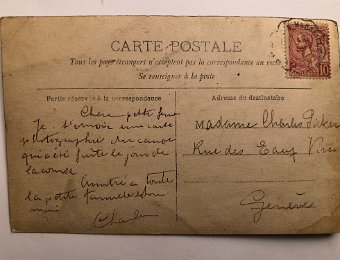 CARTE POSTALE
Tous les pays étrangers n'acceptent pas la correspondance au recto
Se renseigner à la poste
Partie réservée à la correspondance
Adresse du destinataire
10
Chère petite
Je t'envoie une carte
photographie des canots
qui a été faite le jour de
la course
Amitié à toute
la petite famille et
Charles
Madame Charles
Rue des Eaux Vives
Genève